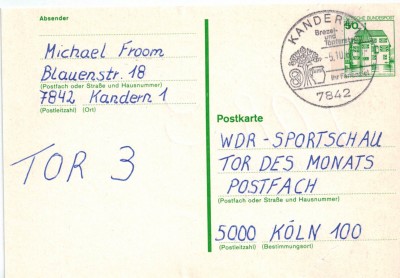 Absender
Michael Froom
Blauenstr. 18
(Postfach oder Straße und Hausnummer)
7842 Kandern 1
(Postleitzahl) (Ort)
TOR 3
KANDERN
Brezel-
und
7842
50
DEUTSCHE BUNDESPOST
Postkarte
WDR-SPORTSCHAU
TOR DES MONATS
POSTFACH
(Postfach oder Straße und Hausnummer)
5000 KÖLN 100
(Postleitzahl) (Bestimmungsort)